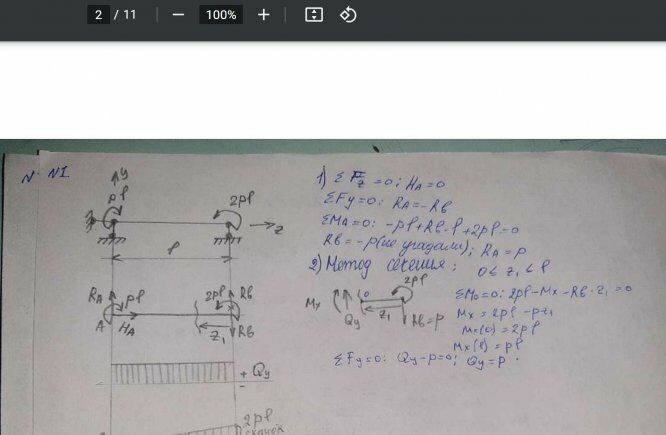 2 / 11
100%
N. N1
y
pl
2pl
z
l
RA
pl
2pl
Rb
A
HA
z1
Rb
+ Qy
-
2pl
скачок
1) ΣFz=0; HA=0
ΣFy=0; RA=-Rb
ΣMA=0: -pl+Rb·l+2pl=0
Rb=-p(не угадали); RA=p
2) Метод сечения: 0≤z1≤l
Mx
Qy
0
2pl
z1
Rb=p
ΣM0=0: 2pl-Mx-Rb·z1=0
Mx=2pl-pz1
Mx(0)=2pl
Mx(l)=pl
ΣFy=0: Qy-p=0; Qy=p